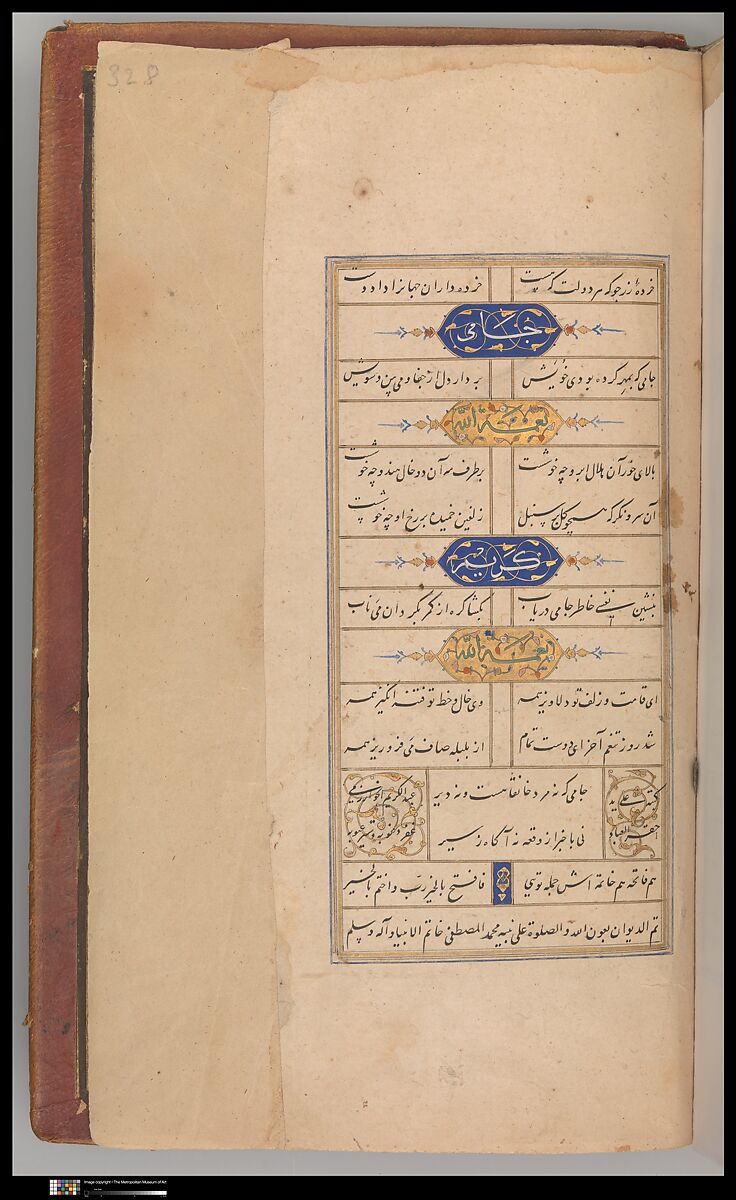 328
خرده از زر جو که سر دولت که هست خرده داران جهانرا داد دست
جامی
جامی که بمهر کرده بودی خویش بردار دل از جفا و می بین و
نعمة الله
بالای خور آن هلال ابرو چه خوشست بر طرف مه آن دو خال هندو چه خوشست
آن سرو نگر که همچو گل بر سنبل زلفین خمیده بر رخ او چه خوشست
کریم
بنشین نفسی خاطر جامی دریاب بگشا گره از کمر بگردان می ناب
نعمة الله
ای قامت و زلف تو دلاویز همه وی خال و خط تو فتنه انگیز همه
شد روز تنعم آخر ای دوست تمام از بلبله صاف می فرو ریز همه
جامی که نه مرد خانقاهست و نه دیر
نی باخبر از وقفه نه آگاه ز سیر
کتبت علی ید
احقر العباد
عبدالکریم الخوارزمی
غفر ذنوبه و ستر عیوبه
هم فاتحه هم خاتمه اش جمله تویی فافتح بالخیر رب واختم بالخیر
تم الدیوان بعون الله والصلوة علی نبیه محمد المصطفی خاتم الانبیا و آله وسلم
Image copyright The Metropolitan Museum of Art